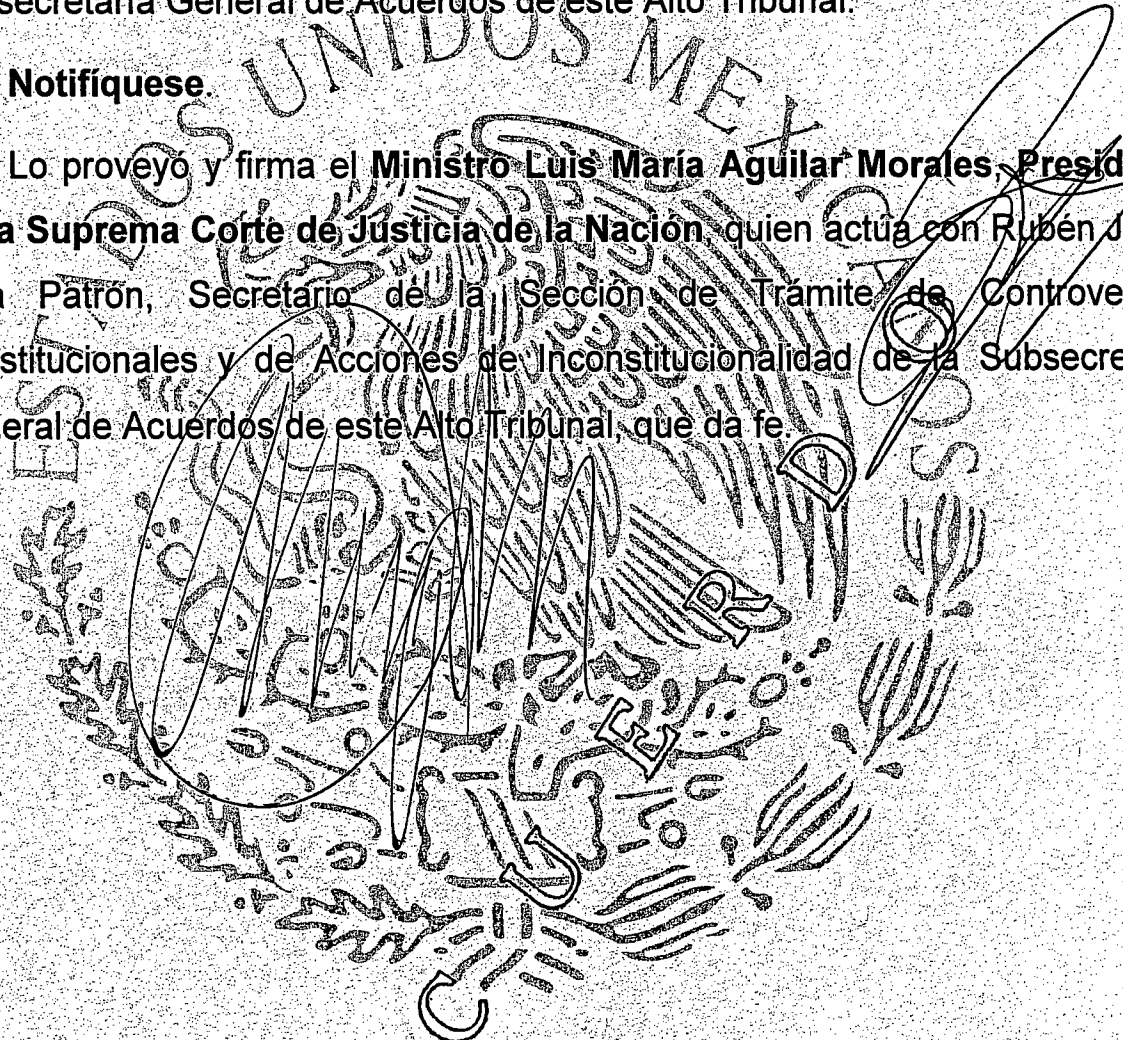 secretaría General de Acuerdos de este Alto Tribunal.
Notifíquese.
Lo proveyó y firma el Ministro Luis María Aguilar Morales, Presid
a Suprema Corte de Justicia de la Nación, quien actúa con Rubén J
Patrón, Secretario de la Sección de Trámite de Controve
stitucionales y de Acciones de Inconstitucionalidad de la Subsecre
eral de Acuerdos de este Alto Tribunal, que da fe.
ESTADOS UNIDOS MEXICANOS
C U E R D